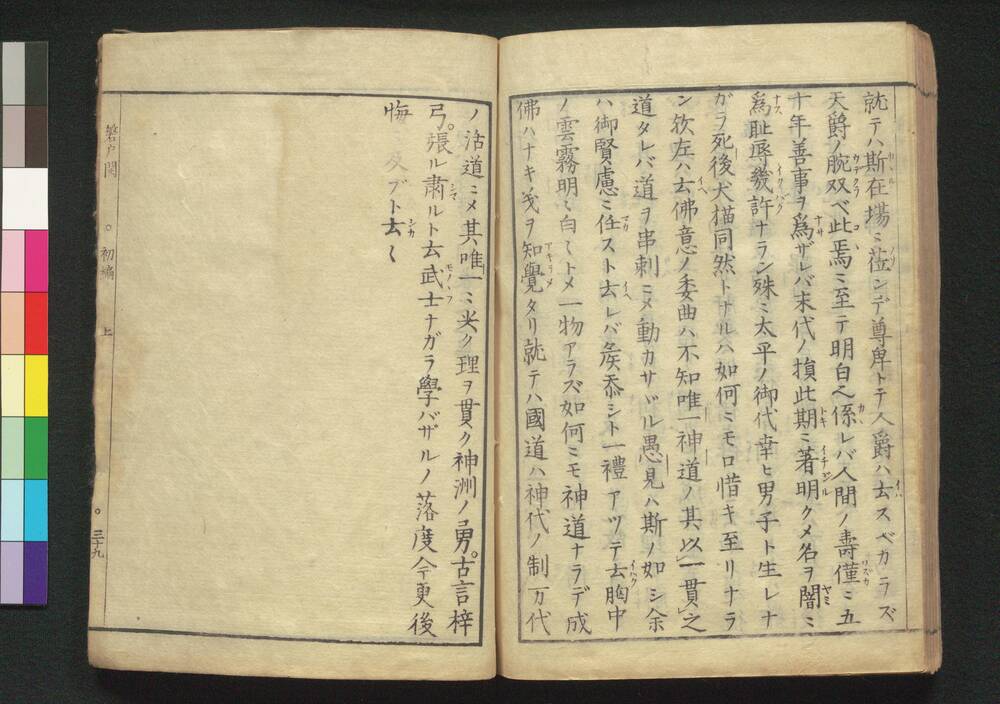 就テハ斯在場ニ莅ンデ尊卑トテ人爵ハ去スベカラズ
天爵ノ腕双ベ此焉ニ至テ明白ヘ係レバ人間ノ壽僅ニ五
十年善事ヲ爲ザレバ末代ノ損此期ニ著明クメ名ヲ闇ニ
爲耻辱幾許ナラン殊ニ太平ノ御代幸ヒ男子ト生レナ
ガラ死後犬猫同然トナルハ如何ニモ口惜キ至リナラ
ン欤左ハ去佛意ノ委曲ハ不知唯一神道ノ其以一貫之
道タレバ道ヲ串刺ニメ動カサヾル愚見ハ斯ノ如シ余
ハ御賢慮ニ任スト去レバ矦忝シト一禮アツテ去胸中
ノ雲霧明ニ白〻トメ一物アラズ如何ニモ神道ナラデ成
佛ハナキ㐂ヲ知覺タリ就テハ國道ハ神代ノ制万代
ノ活道ニメ其唯一ニ尖ク理ヲ貫ク神洲ノ勇。古言梓
弓。張ル肅ルト去武士ナガラ學バザルノ落度今更後
悔 及ブト去〻
磐戸開 ○初編 上 ○三十九